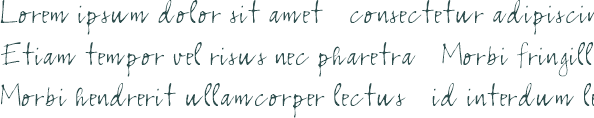 Lorem ipsum dolor sit amet consectetur adipiscin
Etiam tempor vel risus nec pharetra Morbi fringill
Morbi hendrerit ullamcorper lectus id interdum le